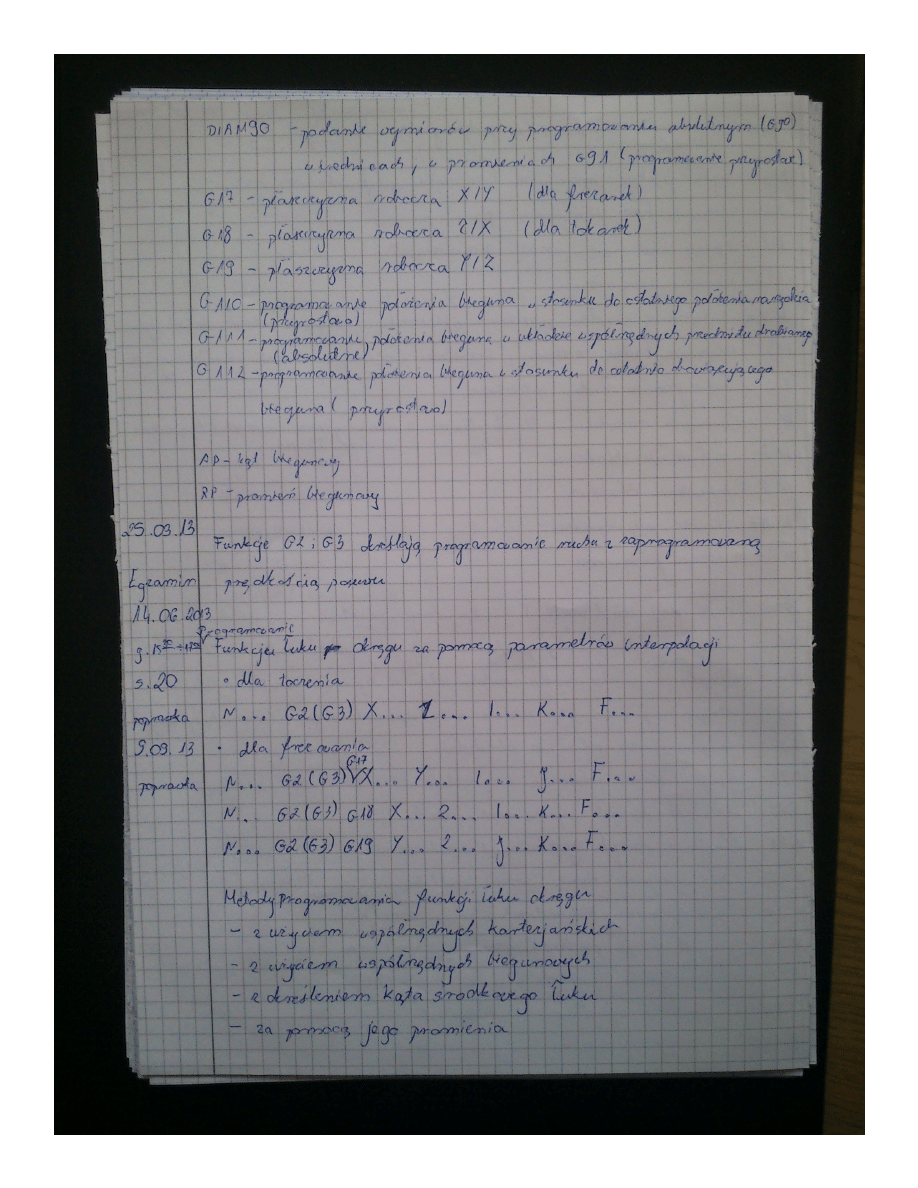 DIAM90 - podanie wymiarów przy programowaniu absolutnym (G90)
w średnicach, w promieniach G91 (programowanie przyrostow)
G17 - płaszczyzna robocza X/Y (dla frezarek)
G18 - płaszczyzna robocza Z/X (dla tokarek)
G19 - płaszczyzna robocza Y/Z
G110 - programowanie położenia bieguna w stosunku do ostatniego położenia narzędzia
(przyrostowo)
G111 - programowanie położenia bieguna w układzie współrzędnych przedmiotu obrabianego
(absolutne)
G112 - programowanie położenia bieguna w stosunku do ostatnio obowiązującego
bieguna (przyrostowo)
AP - kąt biegunowy
RP - promień biegunowy
25.03.13
Funkcje G2 i G3 określają programowanie ruchu z zaprogramowaną
Egzamin prędkością posuwu
14.06.2013
Programowanie
g. Funkcja łuku okręgu za pomocą parametrów interpolacji
s.20 • dla toczenia
poprawka N... G2(G3) X... Z... I... K... F...
9.09.13 • dla frezowania
G17
poprawka N... G2(G3) X... Y... I... J... F...
N... G2(G3) G18 X... Z... I... K... F...
N... G2(G3) G19 Y... Z... J... K... F...
Metody programowania funkcji łuku okręgu
- z użyciem współrzędnych karterjańskich
- z użyciem współrzędnych biegunowych
- z określeniem kąta środkowego łuku
- za pomocą jego promienia